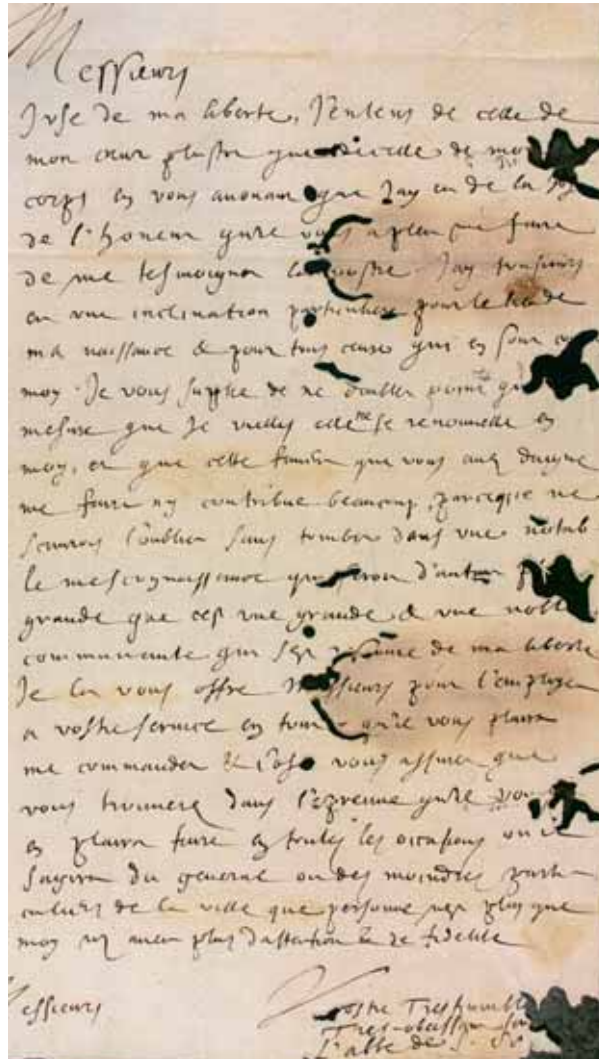 Messieurs
J'use de ma liberte, J'entens de celle de
mon cœur plustost que de celle de mon
corps en vous avouant que Jay eu de la
de l'honeur qu'il vous a pleu me faire
de me tesmoigner la vostre. Jay tousiours
eu une inclination particuliere pour le lieu de
ma naissance & pour tous ceux qui en sont
moy. Je vous supplie de ne doutter point
mesure que Je vieillis elle ne se renouvelle en
moy, et que cette faveur que vous avez daigné
me faire ny contribue beaucoup, parceque ne
scaurois l'oublier sans tomber dans une notab
le mescognaissance qui seroit d'autant
grande que c'est une grande & une noble
communauté qui
Je la vous offre Messieurs pour l'employer
a vostre service en tout ce qu'il vous plaira
me commander & J'ose vous assurer que
vous trouverez dans l'epreuve qu'il vous
en plaira faire en toutes les occasions ou il
s'agira du general ou des moindres parti
culiers de la ville que personne n'est plus que
moy ny avec plus d'affection & de fidelité
Messieurs
Vostre Tres humble
Tres-obeissant
L'abbé de S.